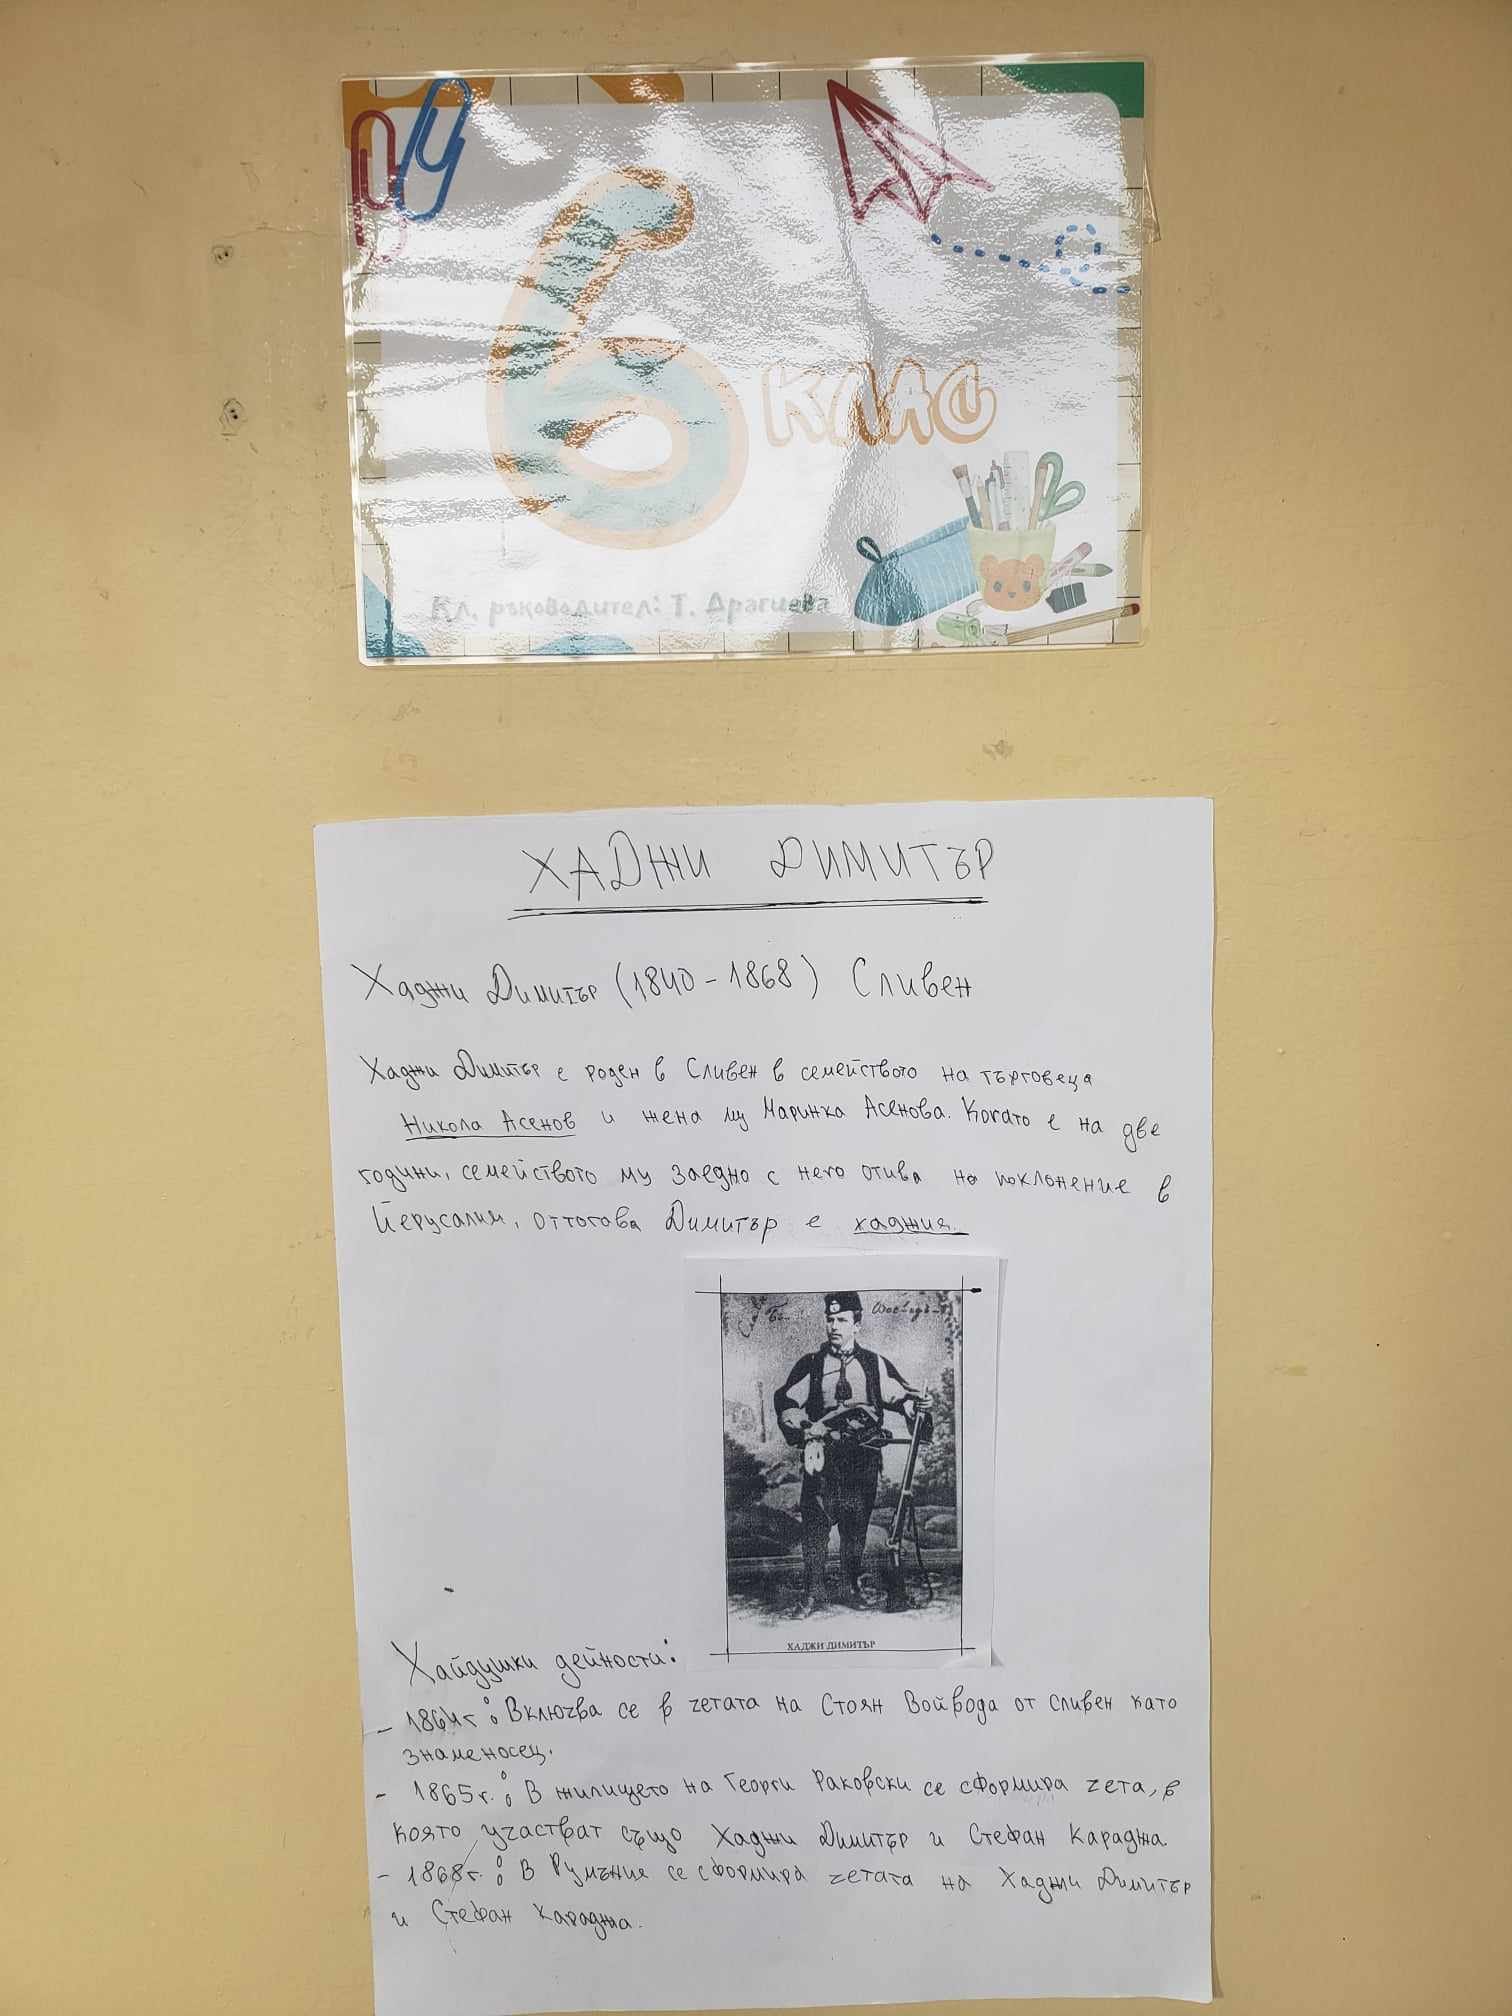 6
КЛАС
Кл. ръководител: Т. Драгиева
ХАДЖИ ДИМИТЪР
Хаджи Димитър (1840 - 1868) Сливен
Хаджи Димитър е роден в Сливен в семейството на търговеца
Никола Асенов и жена му Маринка Асенова. Когато е на две
години, семейството му заедно с него отива на поклонение в
Йерусалим, оттогава Димитър е хаджия.
ХАДЖИ ДИМИТЪР
Хайдушки дейности:
- 1864г.: Включва се в четата на Стоян Войвода от Сливен като
знаменосец.
- 1865г.: В жилището на Георги Раковски се сформира чета, в
която участват също Хаджи Димитър и Стефан Караджа
- 1868г.: В Румъния се сформира четата на Хаджи Димитър
и Стефан Караджа.